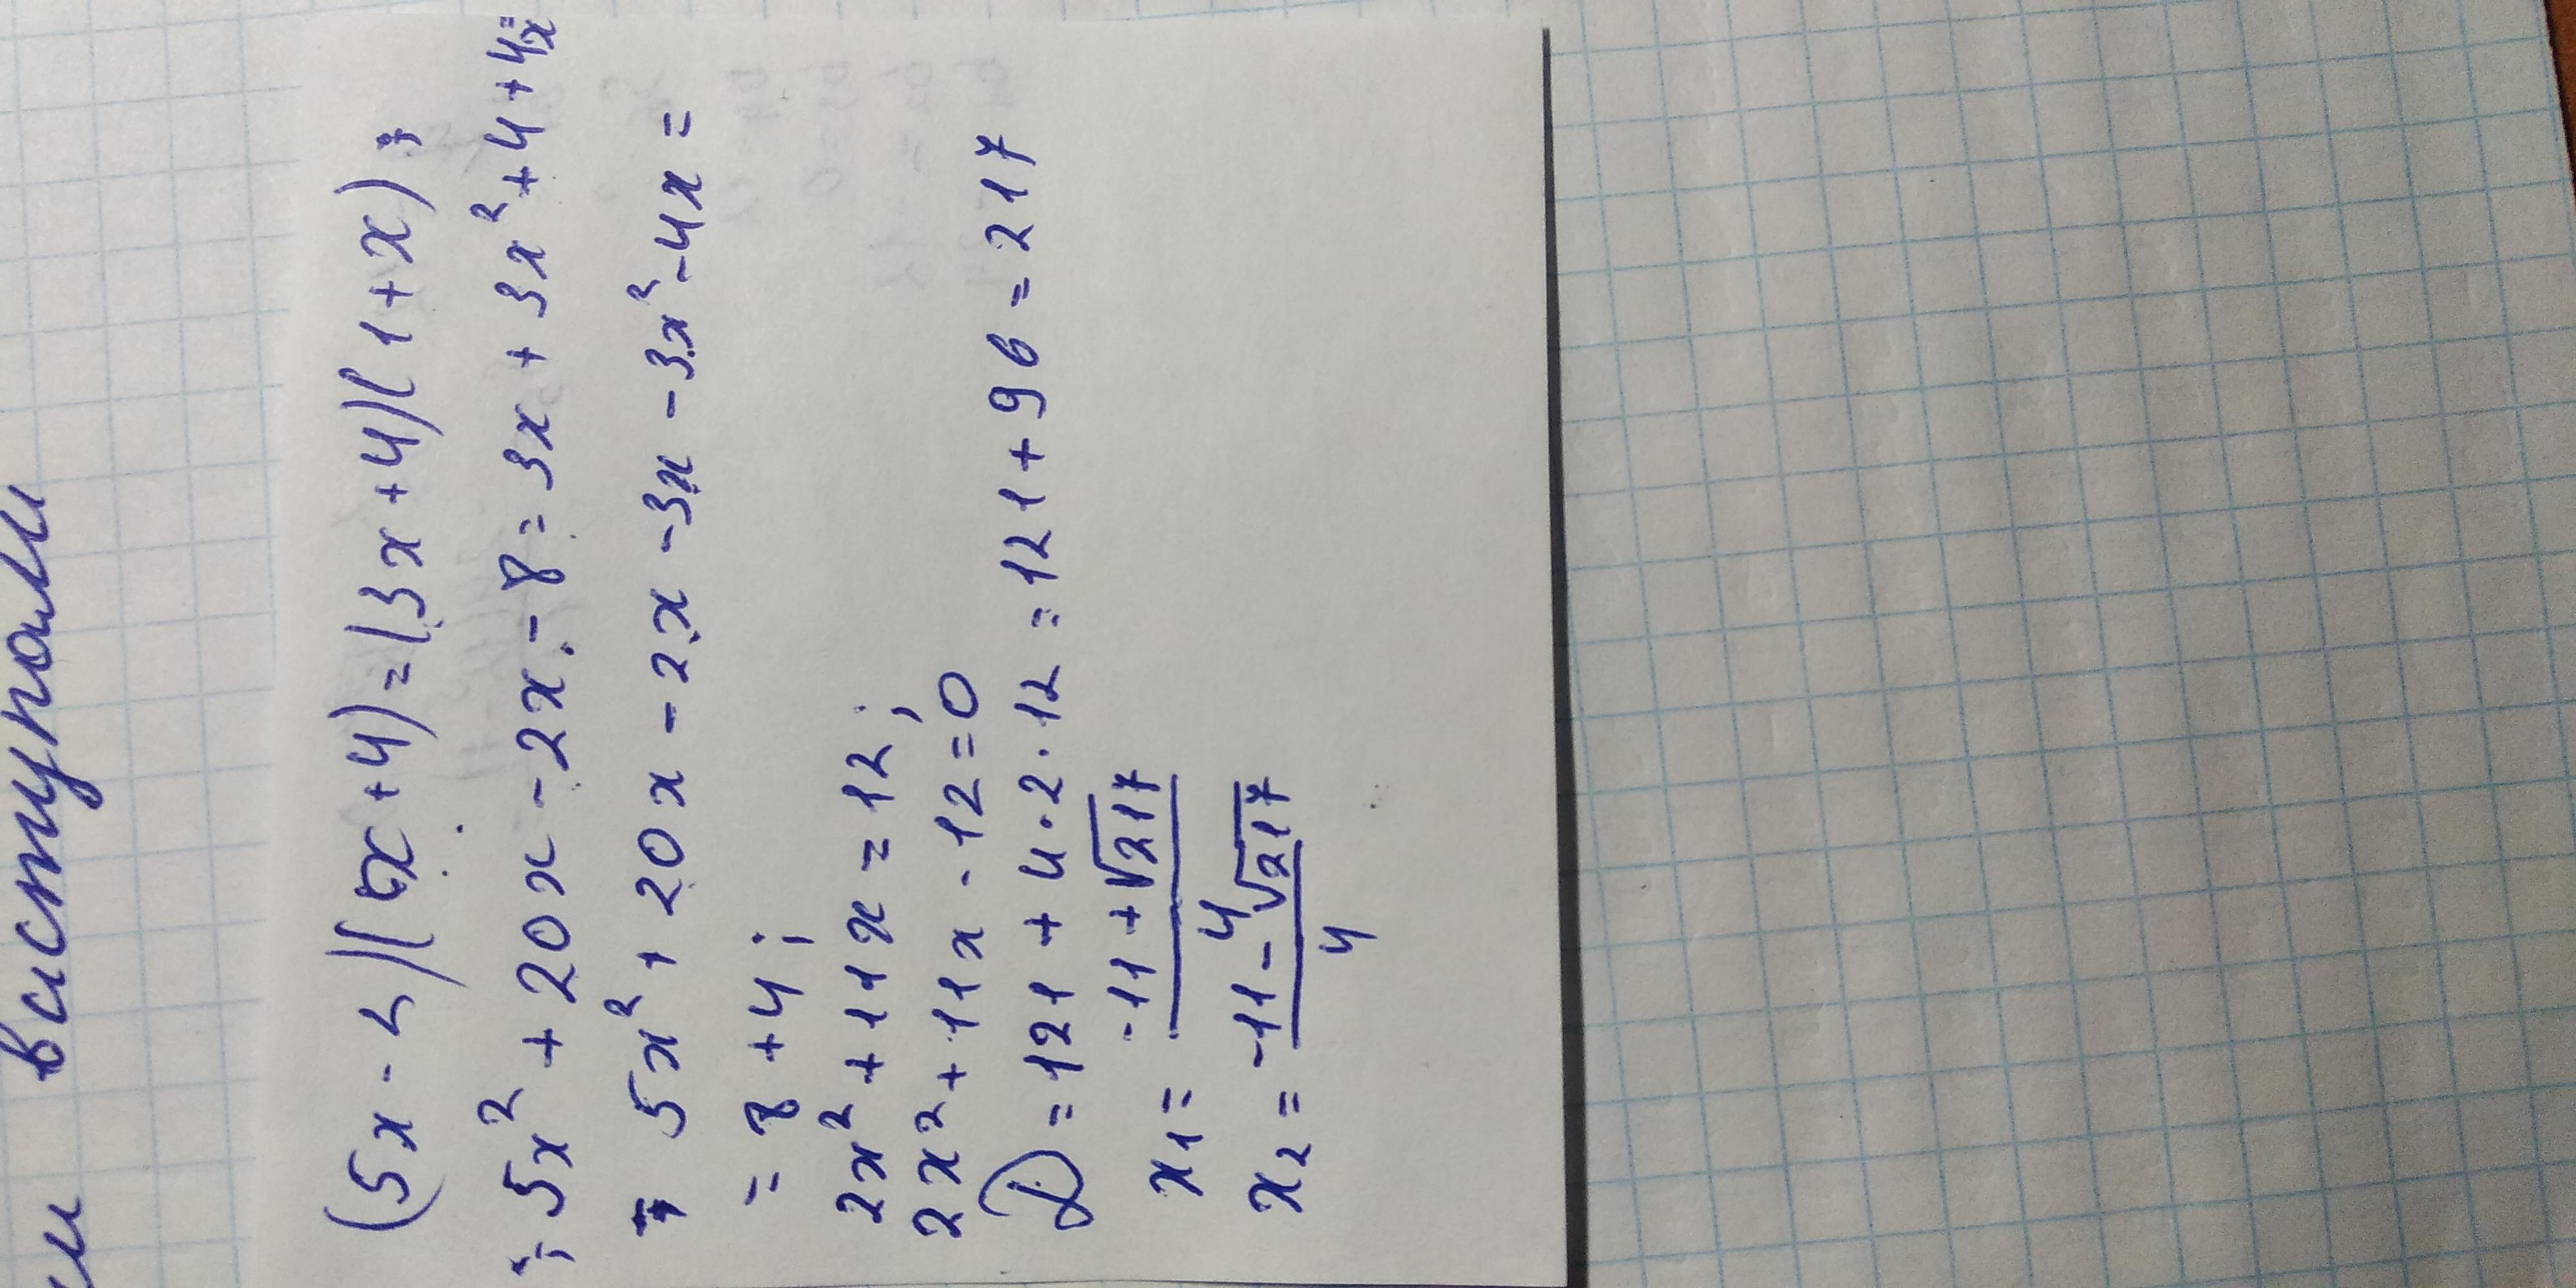 виступали
(5x-2)(x+4)=(3x+4)(1+x);
5x²+20x-2x-8=3x+3x²+4+4x=
= 5x²+20x-2x-3x-3x²-4x=
=8+4;
2x²+11x=12;
2x²+11x-12=0
D=121+4·2·12=121+96=217
x₁= (-11+√217)/4
x₂= (-11-√217)/4